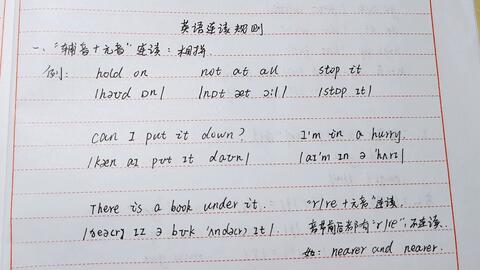 英语连读规则
一、"辅音+元音"连读：相拼
例： hold on not at all stop it
/həʊd ɒn/ /nɒt æt ɔːl/ /stɒp ɪt/
can I put it down? I'm in a hurry.
/kæn aɪ pʊt ɪt daʊn/ /aɪ'm ɪn ə 'hʌrɪ/
There is a book under it. "r/re+元音"连读.
/ðeə(r) ɪz ə bʊk 'ʌndə(r) ɪt/ 音节前后都有"r/re", 不连读
如: nearer and nearer.